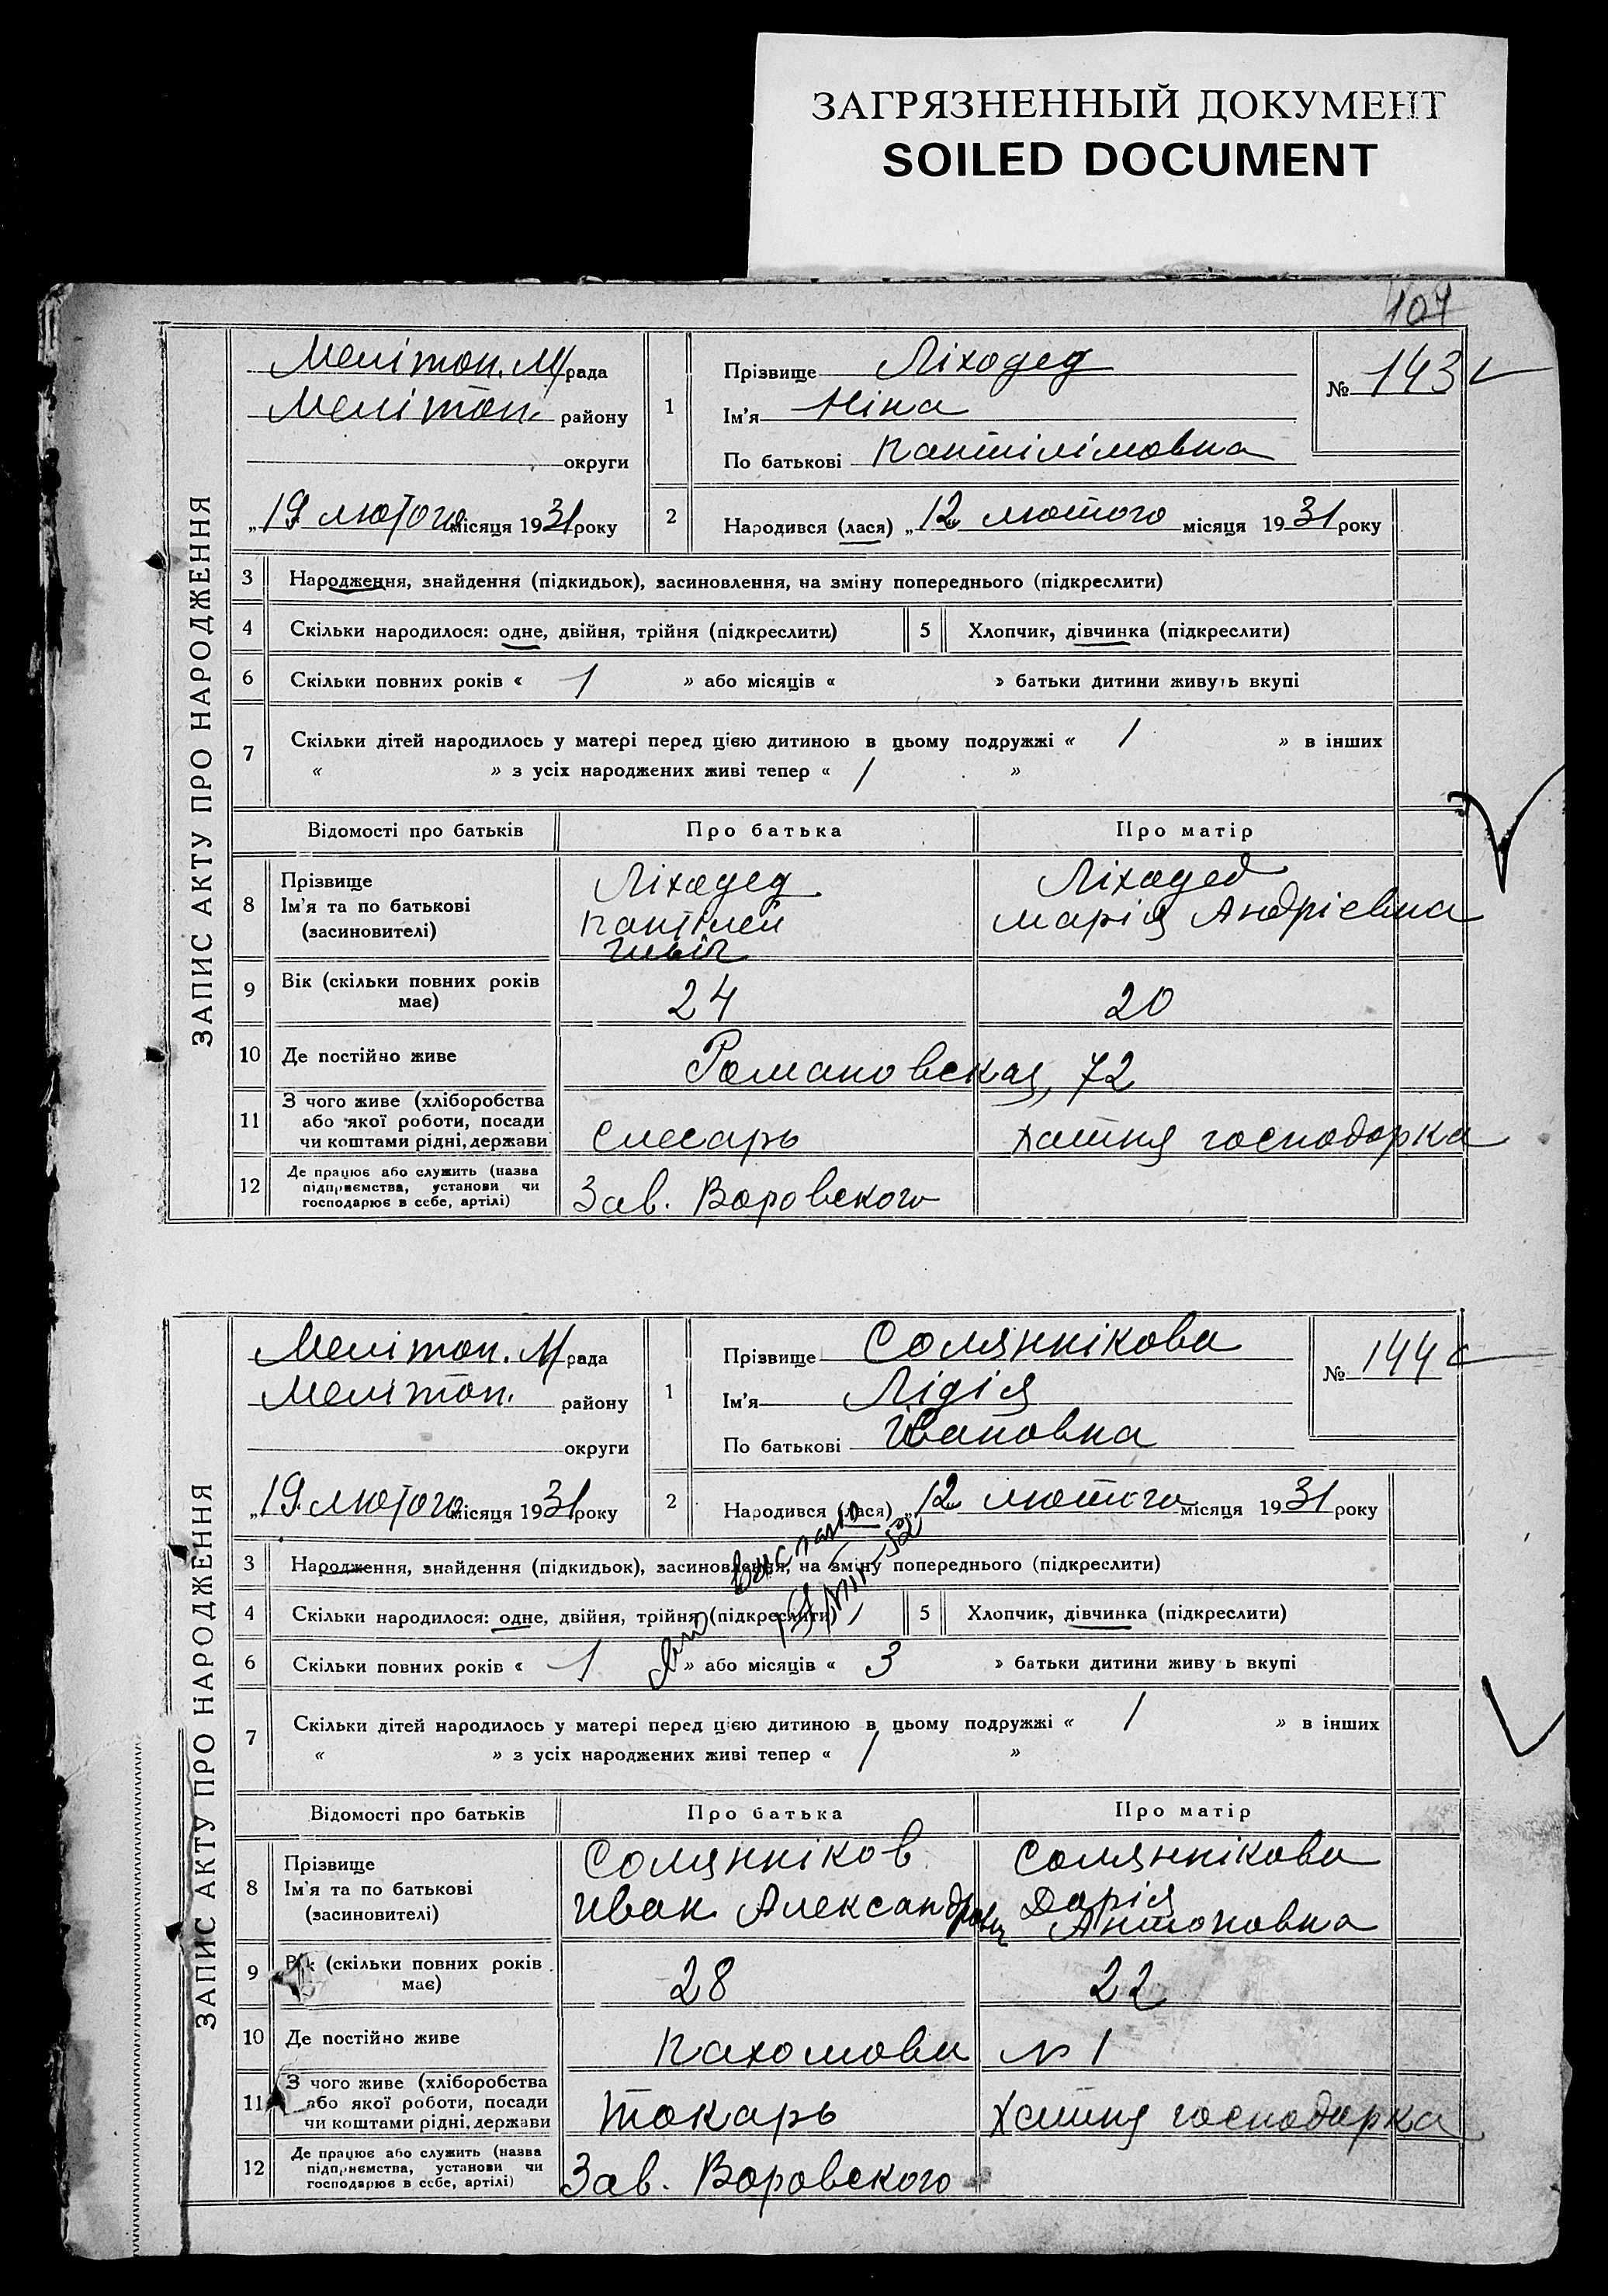 ЗАГРЯЗНЕННЫЙ ДОКУМЕНТ
SOILED DOCUMENT
107
ЗАПИС АКТУ ПРО НАРОДЖЕННЯ
Мелітоп. М/рада
Мелітоп. району
округи
„19 лютого місяця 1931 року
1
Прізвище Ліходед
Ім'я Ніна
По батькові Пантілімовна
№ 143
2 Народився (лася) „12 лютого місяця 1931 року
3 Народження, знайдення (підкидьок), засиновлення, на зміну попереднього (підкреслити)
4 Скільки народилося: одне, двійня, трійня (підкреслити) 5 Хлопчик, дівчинка (підкреслити)
6 Скільки повних років « 1 » або місяців « » батьки дитини живуть вкупі
7 Скільки дітей народилось у матері перед цією дитиною в цьому подружжі « 1 » в інших
« » з усіх народжених живі тепер « 1 »
Відомості про батьків Про батька Про матір
8 Прізвище
Ім'я та по батькові
(засновителі)
Ліходед
Пантілей
Ільїч
Ліходед
Марія Андріевна
9 Вік (скільки повних років має) 24 20
10 Де постійно живе Романовская, 72
11 З чого живе (хліборобства
або якої роботи, посади
чи коштами рідні, держави
слесарь хатня господорка
12 Де працює або служить (назва
підприємства, установи чи
господарює в себе, артілі)
Зав. Воровского
ЗАПИС АКТУ ПРО НАРОДЖЕННЯ
Мелітоп. М/рада
Мелітоп. району
округи
„19 лютого місяця 1931 року
1
Прізвище Соляннікова
Ім'я Лідія
По батькові Івановна
№ 144
2 Народився (лася) „12 лютого місяця 1931 року
3 Народження, знайдення (підкидьок), засиновлення, на зміну попереднього (підкреслити)
4 Скільки народилося: одне, двійня, трійня (підкреслити) 5 Хлопчик, дівчинка (підкреслити)
6 Скільки повних років « 1 » або місяців « 3 » батьки дитини живу ь вкупі
7 Скільки дітей народилось у матері перед цією дитиною в цьому подружжі « 1 » в інших
« » з усіх народжених живі тепер « 1 »
Відомості про батьків Про батька Про матір
8 Прізвище
Ім'я та по батькові
(засиновителі)
Солянніков
Иван Александрович
Соляннікова
Дарія
Антоновна
9 Вік (скільки повних років має) 28 22
10 Де постійно живе Пахомова № 1
11 З чого живе (хліборобства
або якої роботи, посади
чи коштами рідні, держави
токарь хатня господарка
12 Де працює або служить (назва
підприємства, установи чи
господарює в себе, артілі)
Зав. Воровского